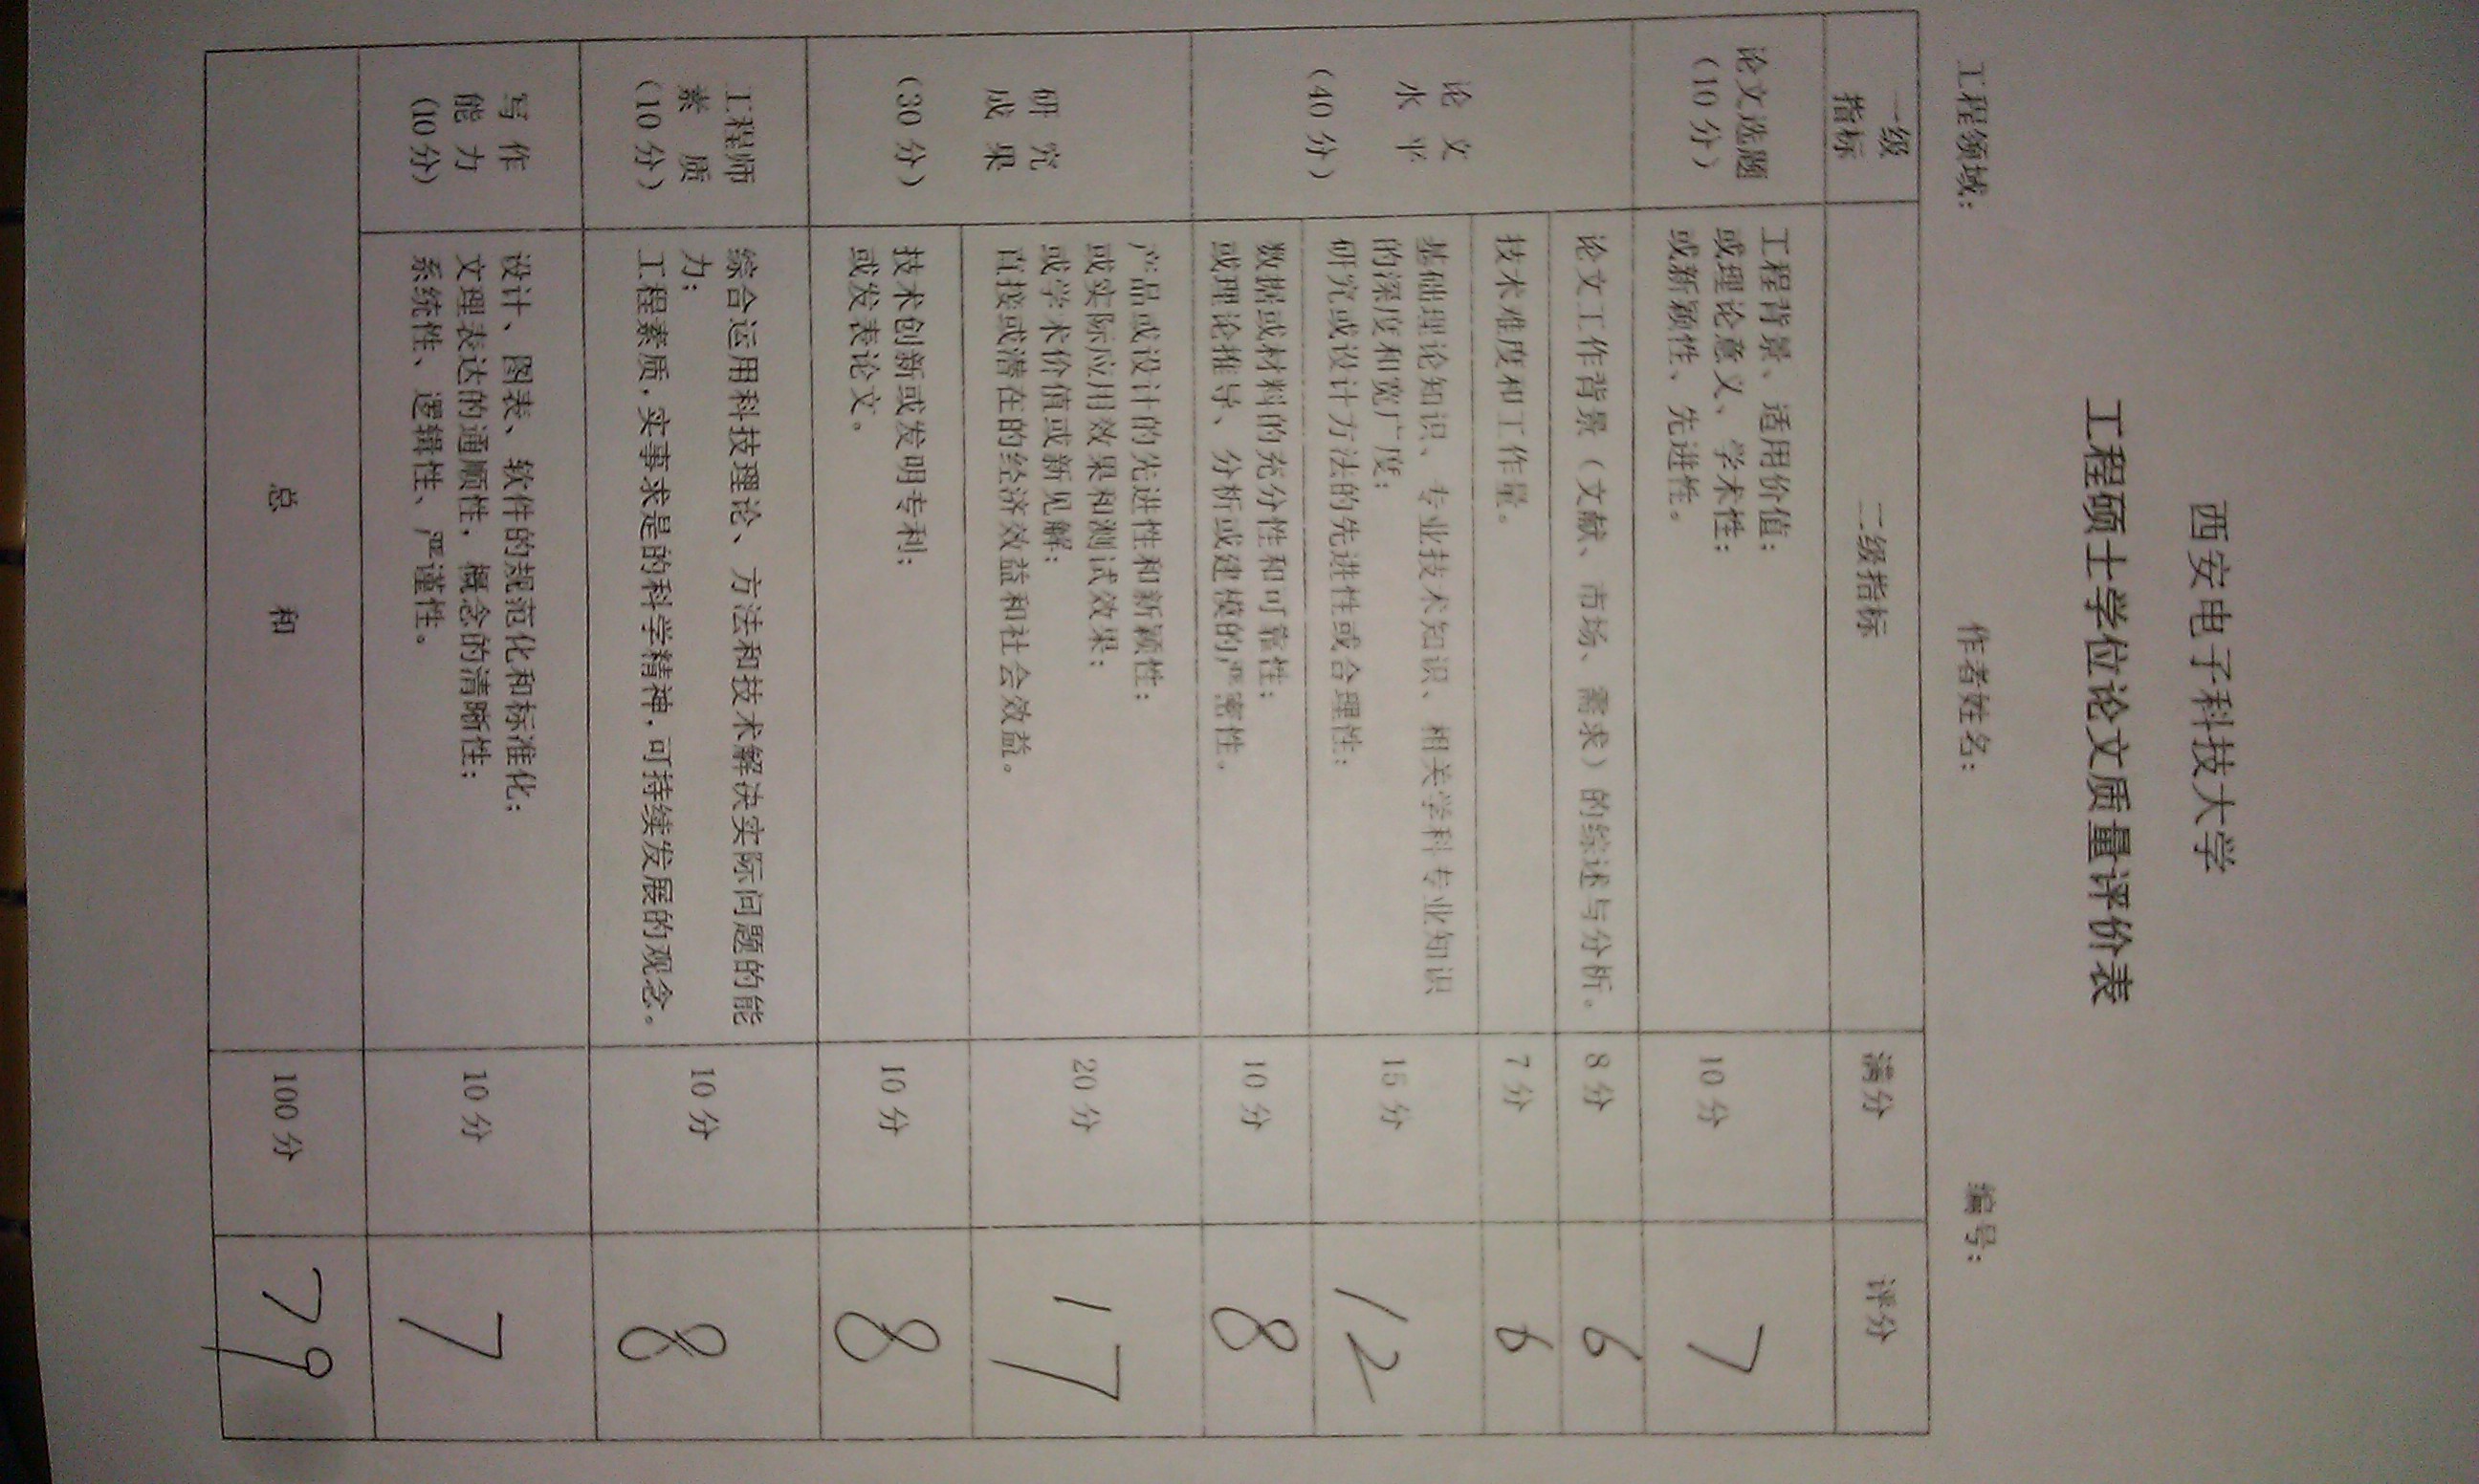 西安电子科技大学
工程硕士学位论文质量评价表
工程领域： 作者姓名： 编号：
一级
指标
二级指标
满分
评分
论文选题
（10 分）
工程背景、适用价值；
或理论意义、学术性；
或新颖性、先进性。
10 分
7
论 文
水 平
（40 分）
论文工作背景（文献、市场、需求）的综述与分析。
8 分
6
技术难度和工作量。
7 分
6
基础理论知识、专业技术知识、相关学科专业知识
的深度和宽广度；
研究或设计方法的先进性或合理性；
15 分
12
数据或材料的充分性和可靠性；
或理论推导、分析或建模的严密性。
10 分
8
研 究
成 果
（30 分）
产品或设计的先进性和新颖性；
或实际应用效果和测试效果；
或学术价值或新见解；
直接或潜在的经济效益和社会效益。
20 分
17
技术创新或发明专利；
或发表论文。
10 分
8
工程师
素 质
（10 分）
综合运用科技理论、方法和技术解决实际问题的能
力；
工程素质，实事求是的科学精神，可持续发展的观念。
10 分
8
写 作
能 力
（10 分）
设计、图表、软件的规范化和标准化；
文理表达的通顺性，概念的清晰性；
系统性、逻辑性、严谨性。
10 分
7
总 和
100 分
79